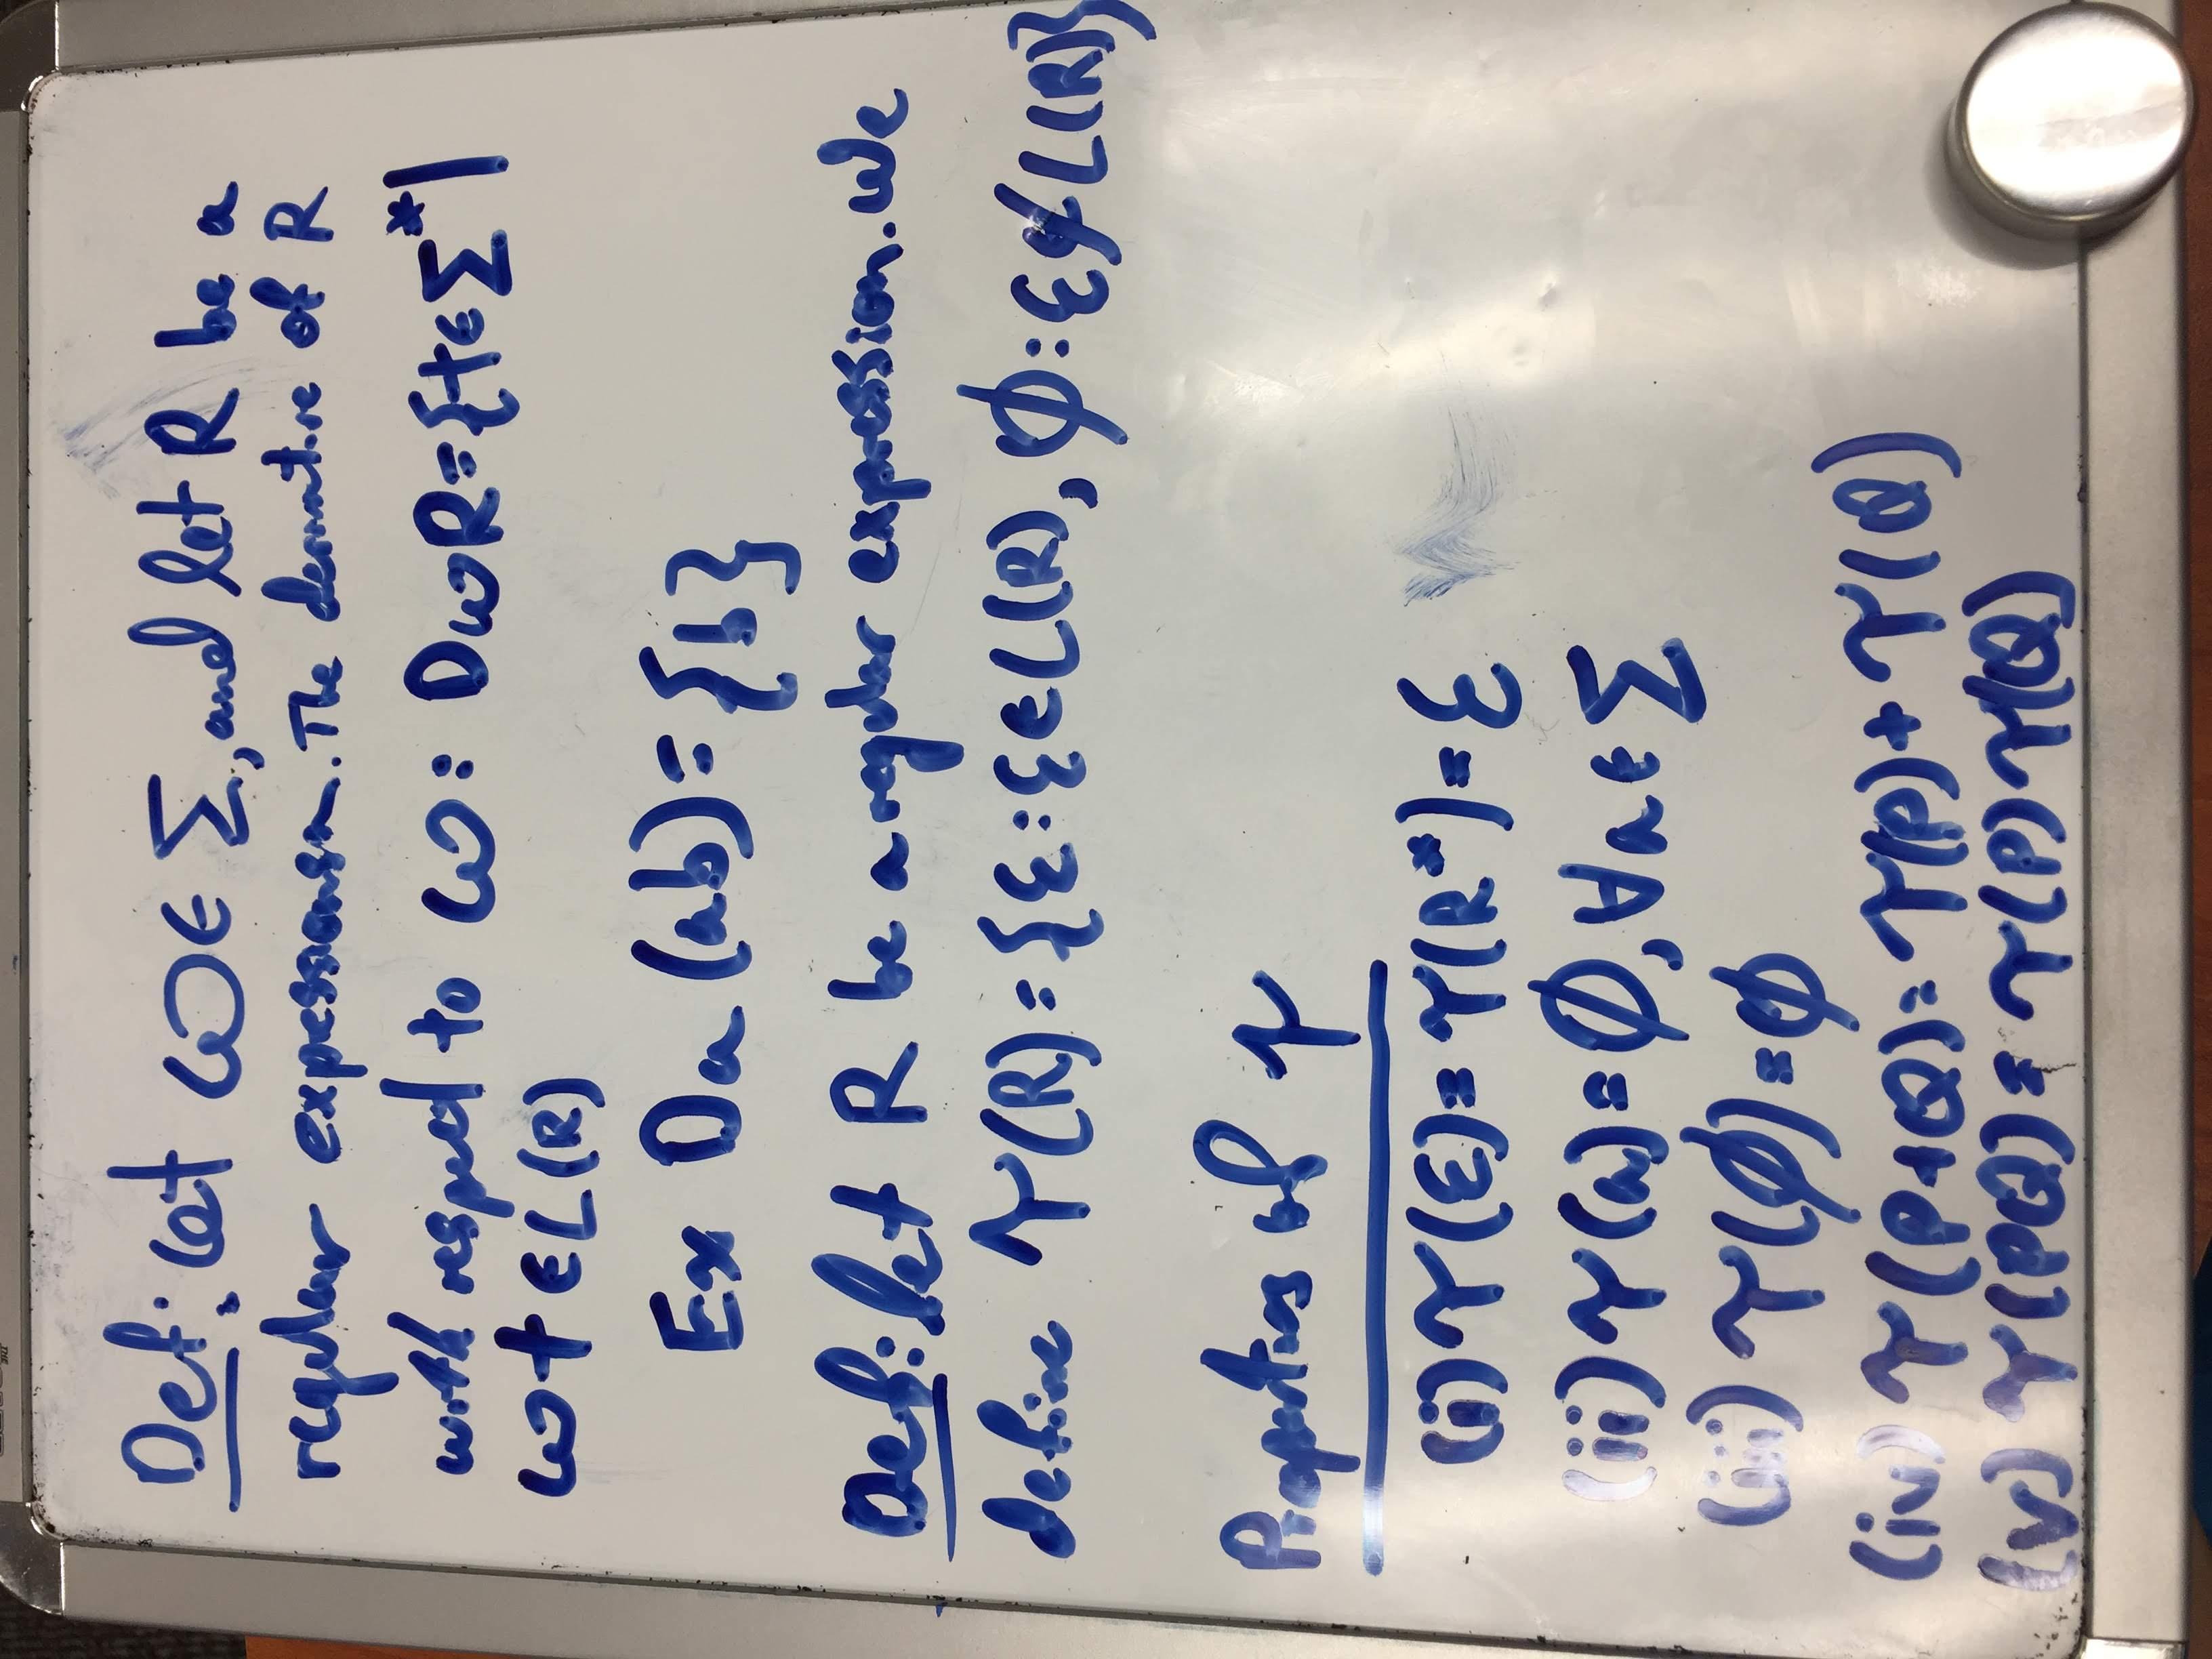 Def: Let ω ∈ Σ, and let R be a
regular expessionsn. The derivative of R
with respect to ω: DωR = {t ∈ Σ* |
ωt ∈ L(R)
Ex Da (ab) = {b}
Def: let R be a regular expression. We
define τ(R) = {ε : ε ∈ L(R), ∅ : ε ∉ L(R)}
Properties of τ
(i) τ(ε) = τ(R*) = ε
(ii) τ(a) = ∅, ∀a ∈ Σ
(iii) τ(∅) = ∅
(iv) τ(P+Q) = τ(P) + τ(Q)
(v) τ(PQ) = τ(P) τ(Q)